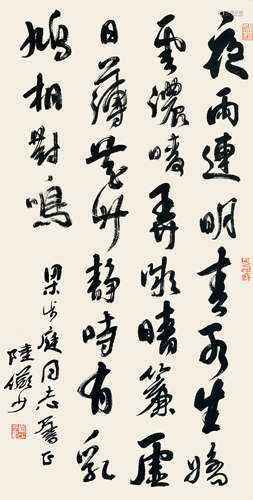 夜雨連明春水生嬌
雲濃暖弄微晴簾虛
日薄花竹靜時有乳
鳩相對鳴
梁步庭同志屬正
陸儼少